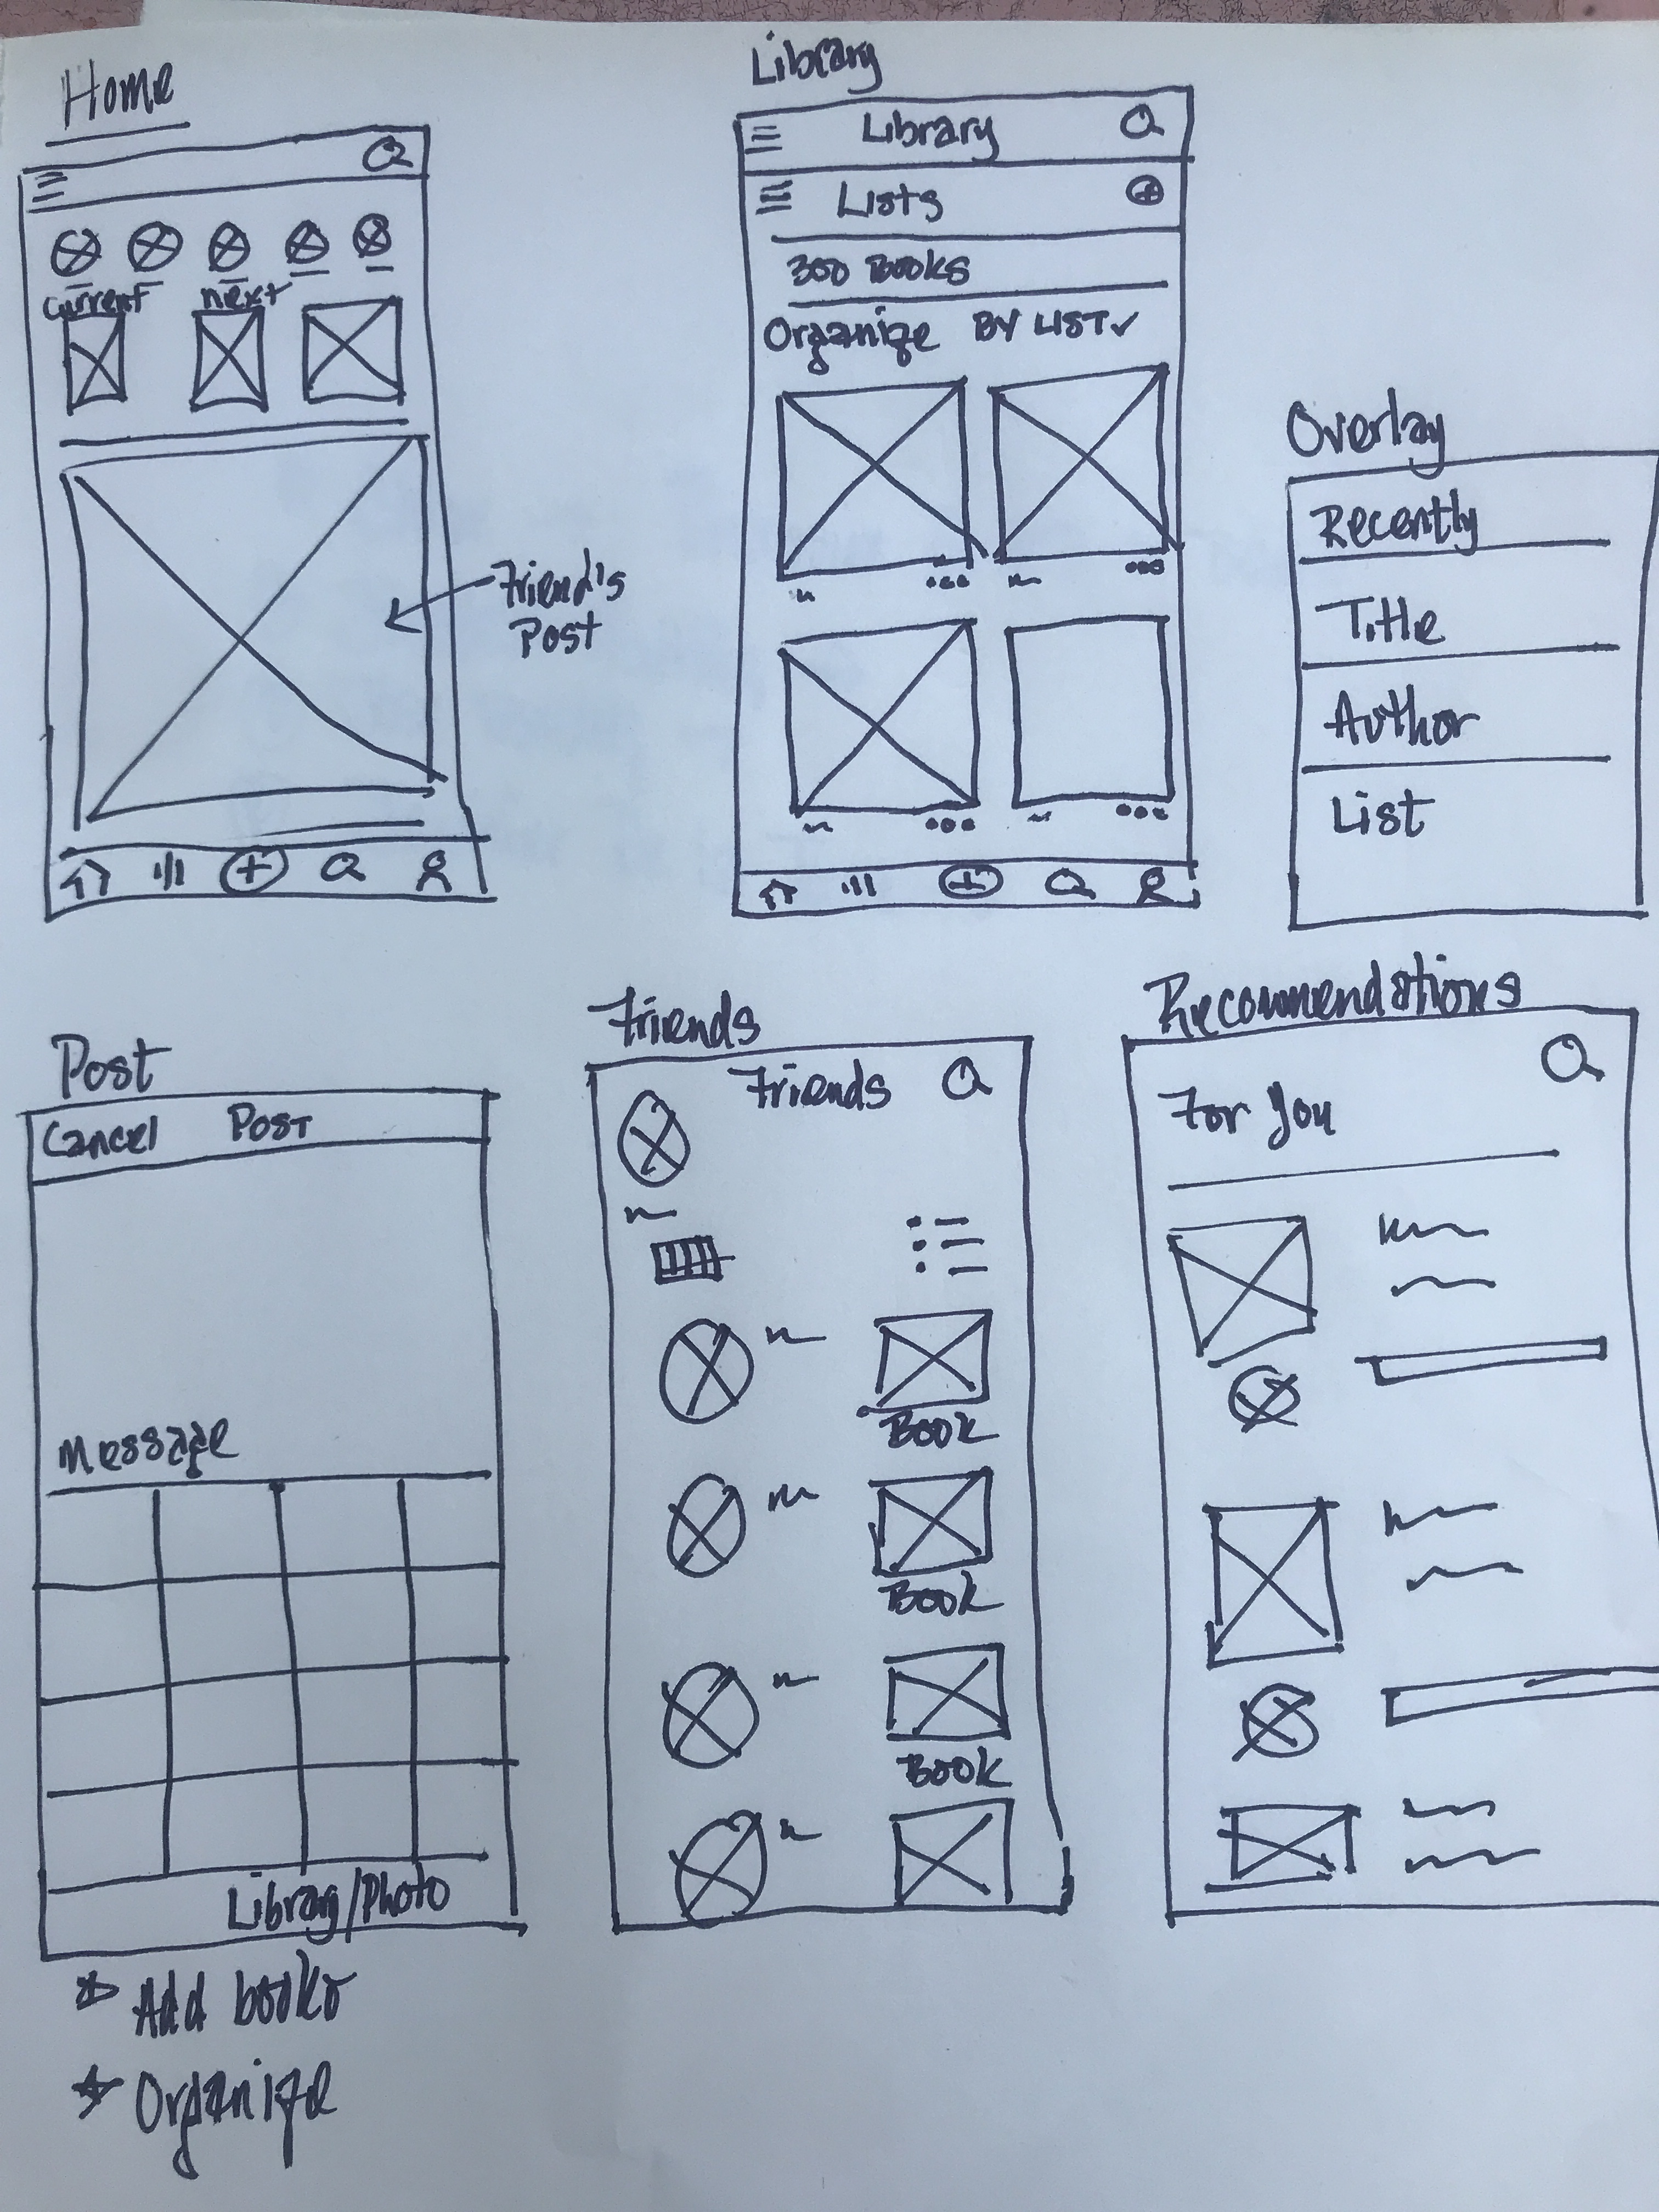 Home
current next
Friend's
Post
Library
Library
Lists
300 Books
Organize BY LIST
Overlay
Recently
Title
Author
List
Post
Cancel Post
Message
Library/Photo
* Add books
* Organize
Friends
Friends
Book
Book
Book
Recommendations
For you